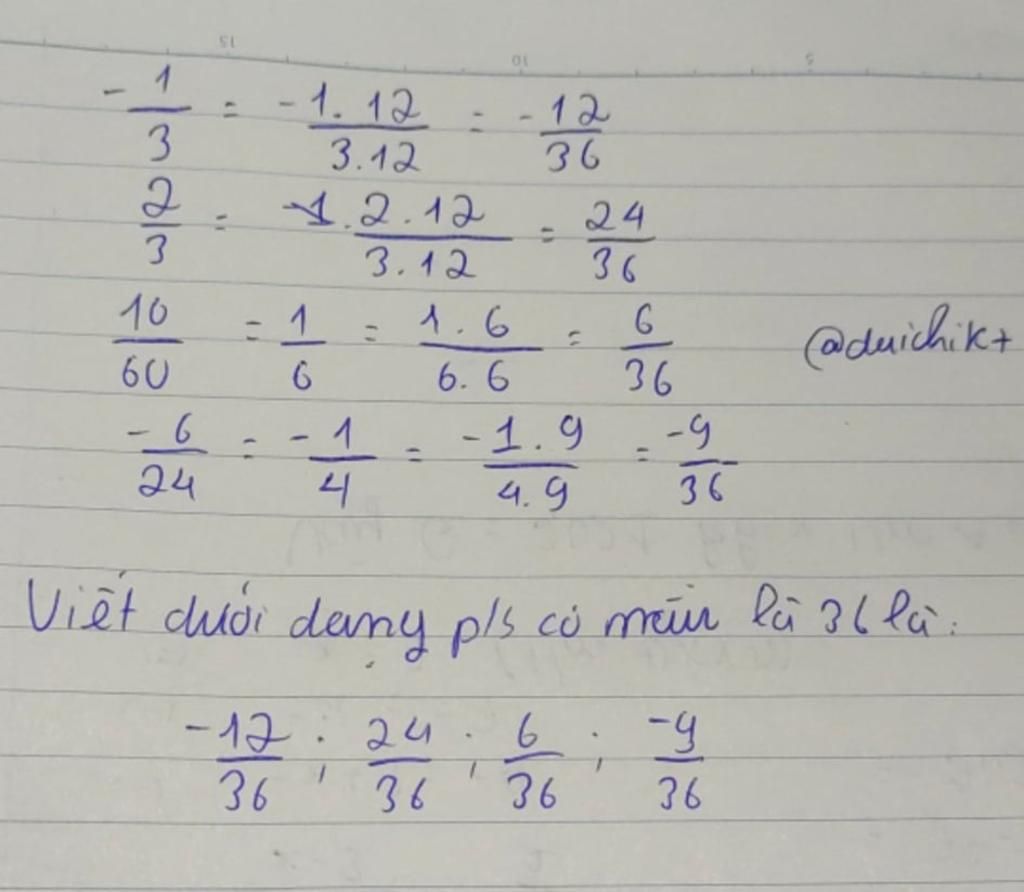 15 10 5
-1/3 = -1.12/3.12 = -12/36
2/3 = 2.12/3.12 = 24/36
10/60 = 1/6 = 1.6/6.6 = 6/36 @duichikt
-6/24 = -1/4 = -1.9/4.9 = -9/36
Viết dưới dạng p/s có mẫu là 36 là:
-12/36 ; 24/36 ; 6/36 ; -9/36